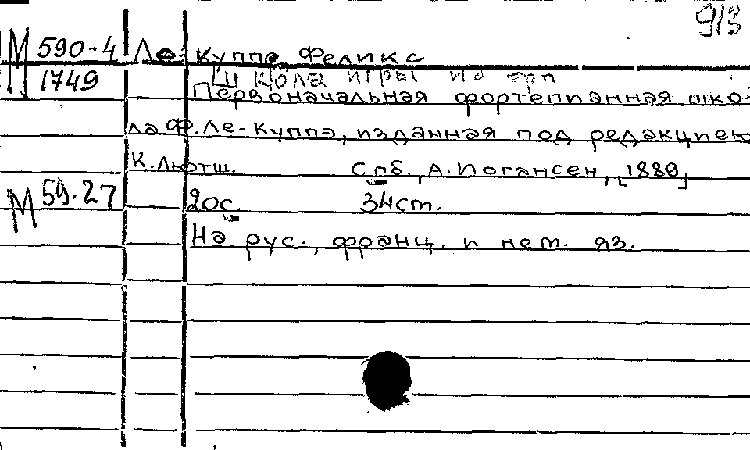 913
М 590-4 Ле-Куппэ, Феликс
1749 Школа игры на фп
Первоначальная фортепианная шко-
ла Ф. Ле-Куппэ, изданная под редакцией
К. Лютш. Спб., А. Иогансен, [1880]
М 59-27 20с. 34см.
На рус., франц. и нем. яз.